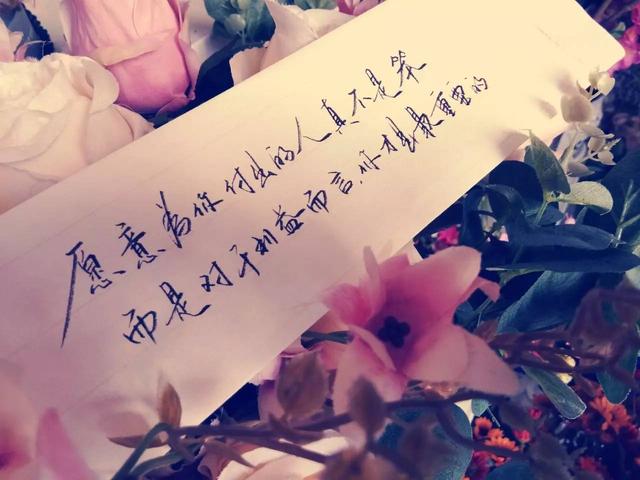 愿意为你付出的人真不是笨
而是对于利益而言.你才是最重要的